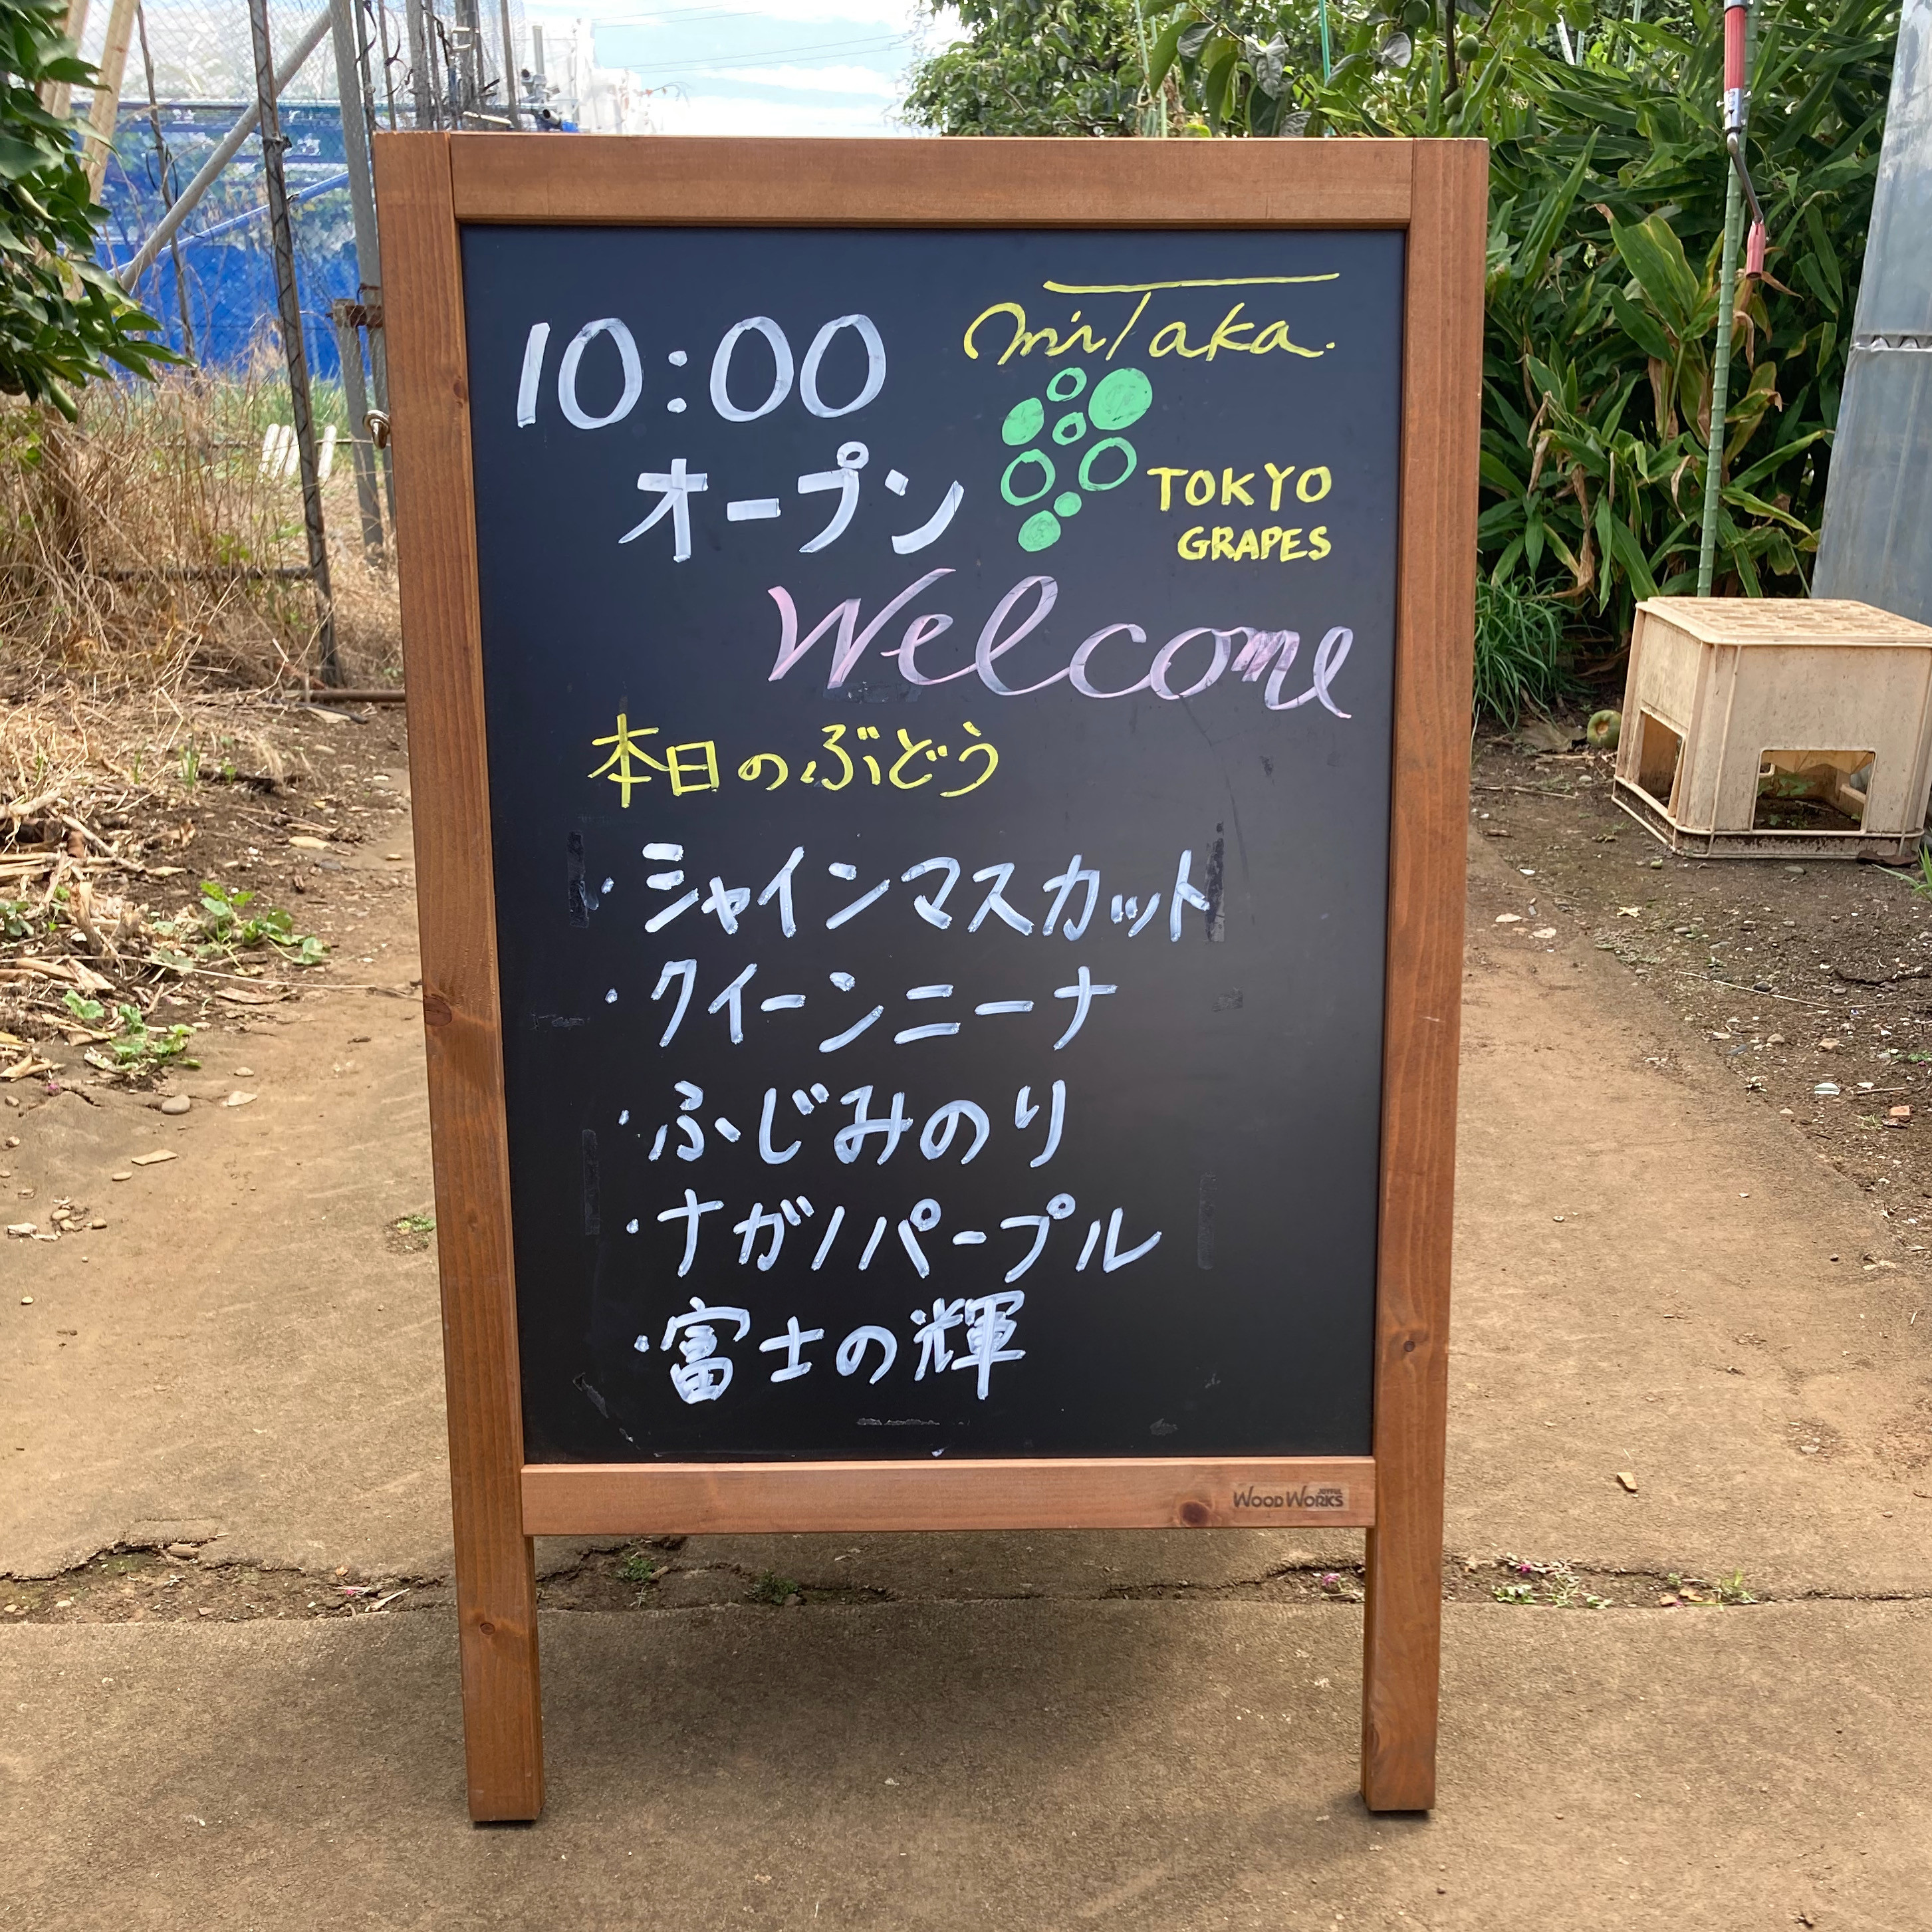 10:00
オープン
miTaka.
TOKYO
GRAPES
Welcome
本日のぶどう
・シャインマスカット
・クイーンニーナ
・ふじみのり
・ナガノパープル
・富士の輝
JOYFUL
WOOD WORKS